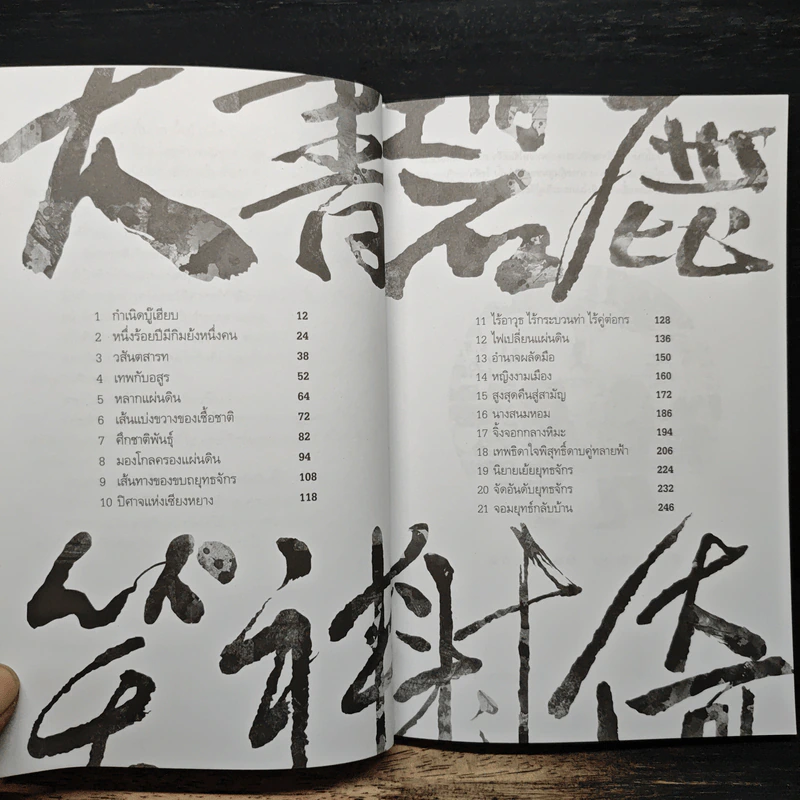 大書碧鹿
1 กำเนิดบู๊เฮียบ 12
2 หนึ่งร้อยปีมีกิมย้งหนึ่งคน 24
3 วสันตสารท 38
4 เทพกับอสูร 52
5 หลากแผ่นดิน 64
6 เส้นแบ่งขวางของเชื้อชาติ 72
7 ศึกชาติพันธุ์ 82
8 มองโกลครองแผ่นดิน 94
9 เส้นทางของขบถยุทธจักร 108
10 ปีศาจแห่งเซียงหยาง 118
11 ไร้อาวุธ ไร้กระบวนท่า ไร้คู่ต่อกร 128
12 ไฟเปลี่ยนแผ่นดิน 136
13 อำนาจผลัดมือ 150
14 หญิงงามเมือง 160
15 สูงสุดคืนสู่สามัญ 172
16 นางสนมหอม 186
17 จิ้งจอกกลางหิมะ 194
18 เทพธิดาใจพิสุทธิ์ดาบคู่ทลายฟ้า 206
19 นิยายเย้ยยุทธจักร 224
20 จัดอันดับยุทธจักร 232
21 จอมยุทธ์กลับบ้าน 246
笑神射倚